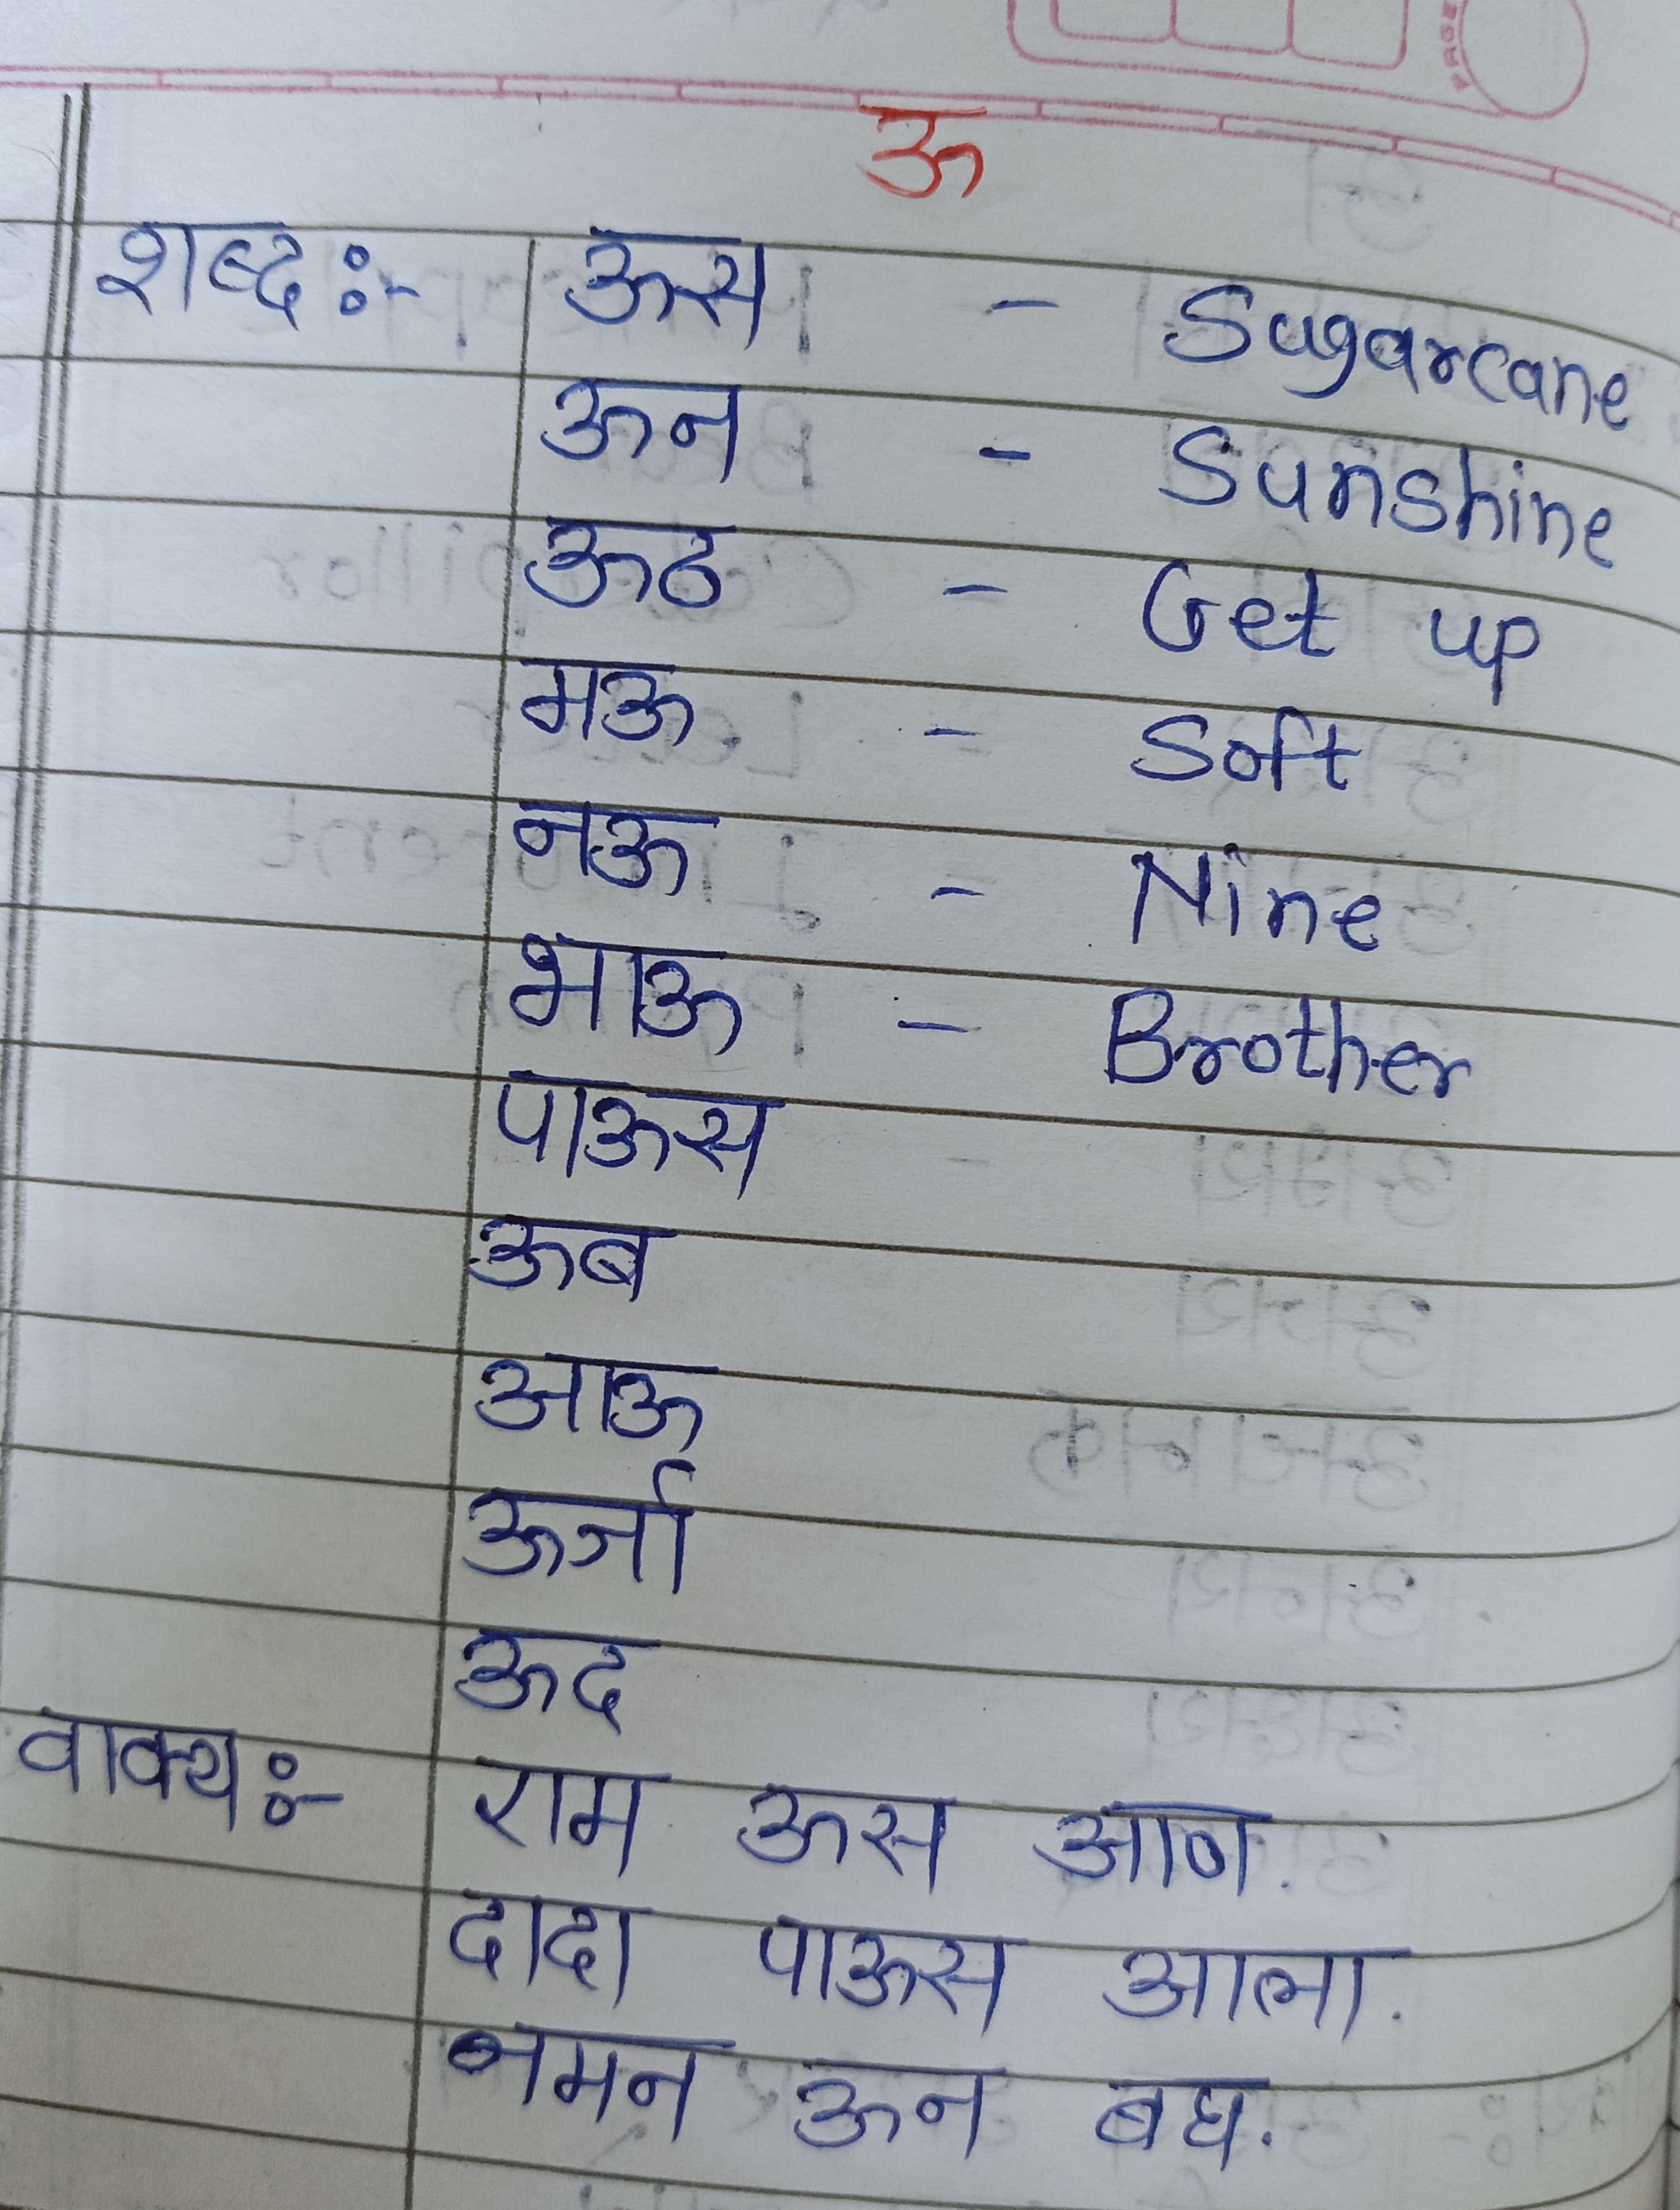 PAGE
ऊ
शब्द :- ऊस - Sugarcane
ऊन - Sunshine
ऊठ - Get up
मऊ - Soft
नऊ - Nine
भाऊ - Brother
पाऊस
ऊब
आऊ
ऊर्जा
ऊद
वाक्य :- राम ऊस आण.
दादा पाऊस आला.
नमन ऊन बघ.